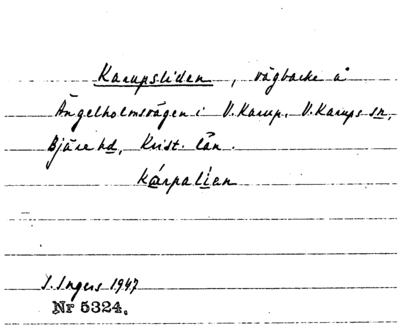 Karupsliden, vägbacke å
Ängelholmsvägen i V. Karup, V. Karups sn,
Bjäre hd, Krist. län.
kárpalíen
I. Ingers 1947
Nr 5324.